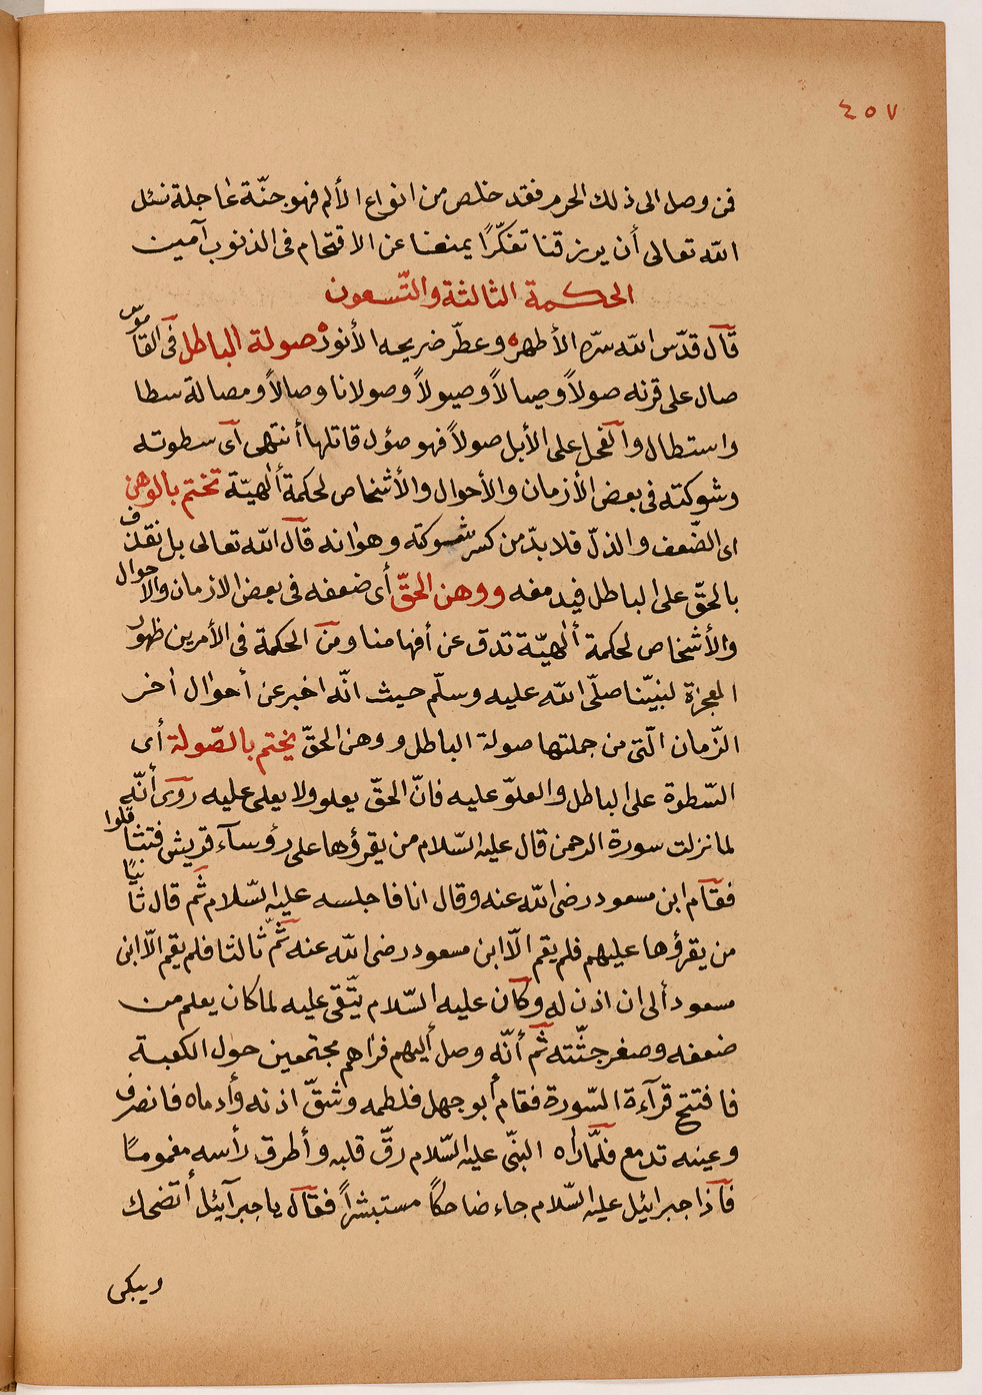 ٤٥٧
فمن وصل الى ذلك الحرم فقد خلص من انواع الألم فهو جنّة عاجلة نسئل
الله تعالى أن يرزقنا تفكّرًا يمنعنا عن الاقتحام فى الذنوب آمين
الحكمة الثالثة والتّسعون
قال قدّس الله سرّه الأطهر وعطّر ضريحه الأنور صولة الباطل فى القاموس
صال على قرنه صولاً وصيالاً وصيولاً وصولانا وصالاً ومصالة سطا
واستطال والفحل على الأبل صولاً فهو صئول قاتلها أنتهى أى سطوته
وشوكته فى بعض الأزمان والأحوال والأشخاص لحكمة ألٰهيّة تختم بالوهن
اى الضّعف والذلّ فلا بدّ من كسر شوكته وهوانه قال الله تعالى بل نقذف
بالحقّ على الباطل فيدمغه ووهن الحقّ أى ضعفه فى بعض الازمان والاحوال
والأشخاص لحكمة ألٰهيّة تدق عن أفهامنا ومن الحكمة فى الأمرين ظهور
المعجزة لنبيّنا صلّى الله عليه وسلّم حيث انّه اخبر عن أحوال أخر
الزّمان الّتى من جملتها صولة الباطل ووهن الحقّ يختم بالصّولة أى
السّطوة على الباطل والعلوّ عليه فانّ الحقّ يعلو ولا يعلى عليه روى أنّه
لما نزلت سورة الرحمن قال عليه السّلام من يقرؤها على رؤسآء قريش فتثاقلوا
فقام ابن مسعود رضى الله عنه وقال انا فاجلسه عليه السّلام ثم قال ثانيًا
من يقرؤها عليهم فلم يقم الّا ابن مسعود رضى الله عنه ثمّ ثالثا فلم يقم الّا ابن
مسعود ألى ان اذن له وكان عليه السّلام يتّقى عليه لما كان يعلم من
ضعفه وصغر جثّته ثم أنّه وصل أليهم فراهم مجتمعين حول الكعبة
فافتتح قرآءة السّورة فقام أبو جهل فلطمه وشقّ اذنه وأدماه فانصرف
وعينه تدمع فلمّا رأه النبّى عليه السّلام رقّ قلبه وأطرق رأسه مغمومًا
فاذا جبرائيل عليه السّلام جاء ضاحكًا مستبشراً فقال يا جبرآئيل أتضحك
ويبكى